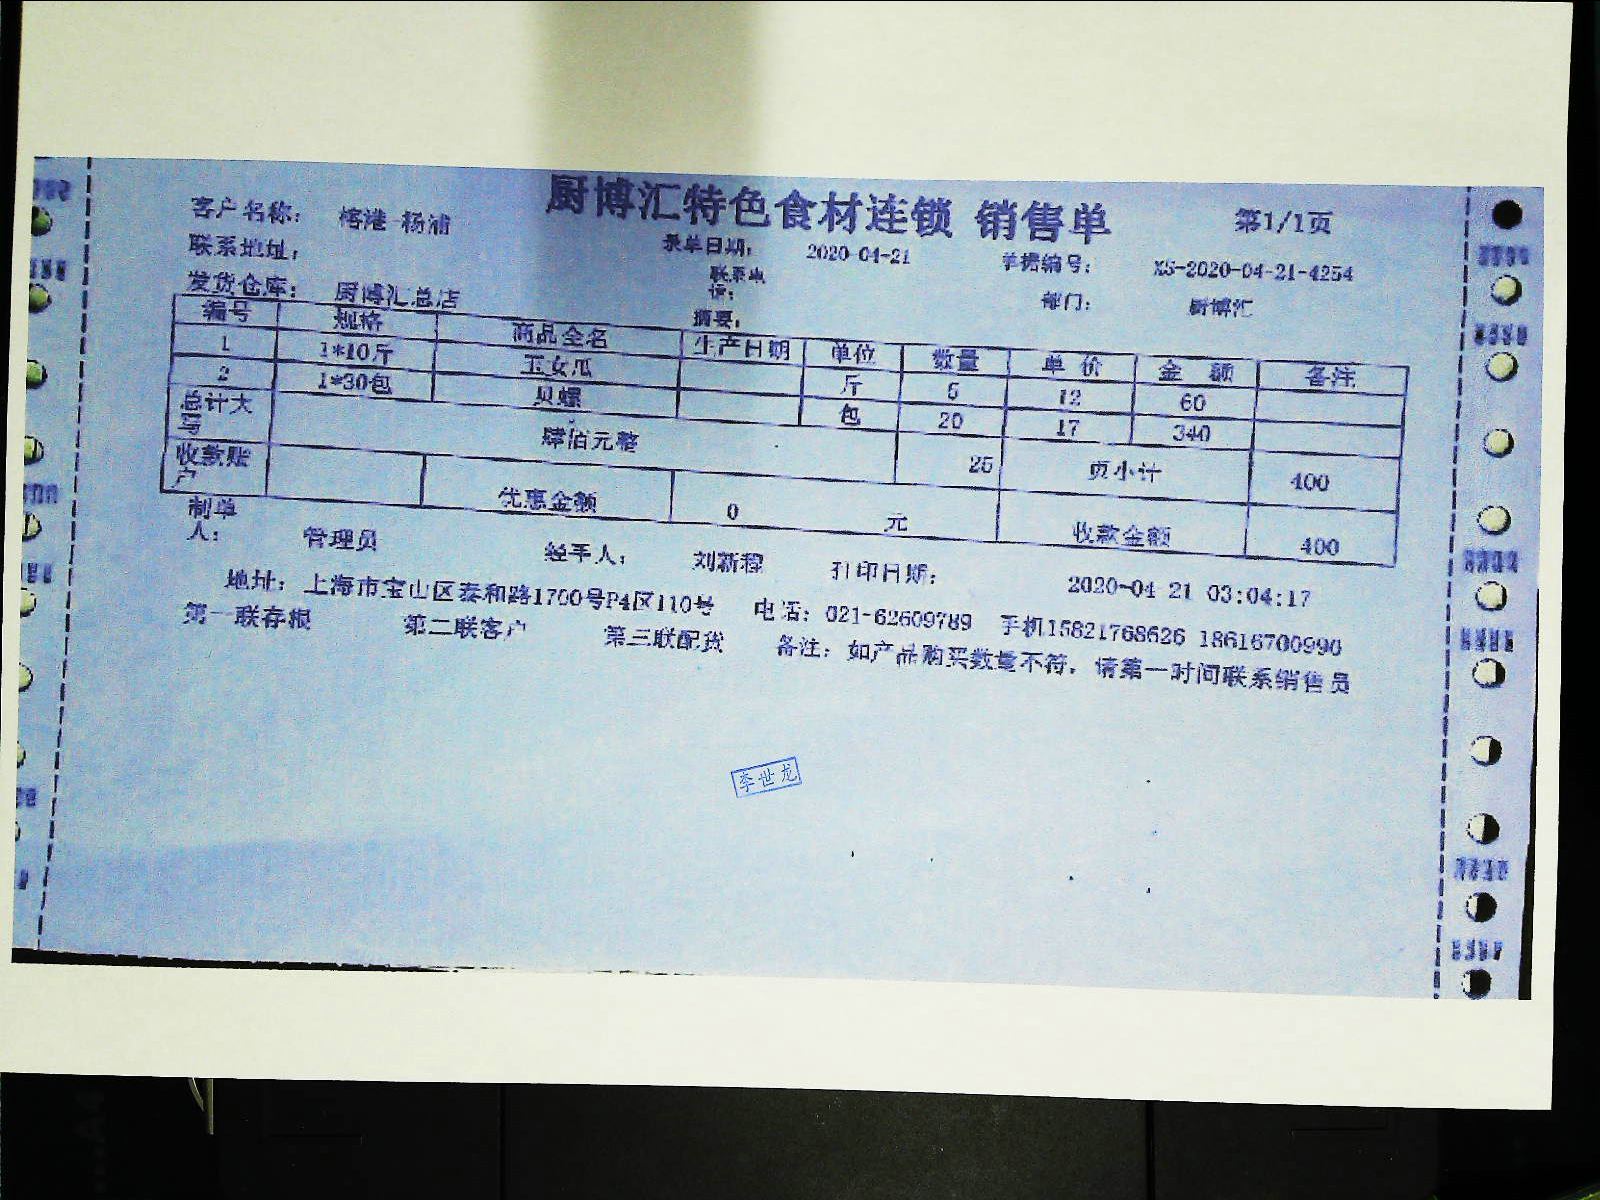 厨博汇特色食材连锁 销售单
第1/1页
客户名称： 榕港-杨浦
录单日期： 2020-04-21 单据编号： XS-2020-04-21-4254
联系地址： 联系电话：
部门： 厨博汇
发货仓库： 厨博汇总店 摘要：
编号 规格 商品全名 生产日期 单位 数量 单价 金额 备注
1 1*10斤 玉女瓜 斤 5 12 60
2 1*30包 贝螺 包 20 17 340
总计大写 肆佰元整 25 页小计 400
收款账户 优惠金额 0 元 收款金额 400
制单人： 管理员 经手人： 刘新 打印日期： 2020-04-21 03:04:17
地址：上海市宝山区泰和路1700号P4区110号 电话：021-62609789 手机15821768626 18616700990
第一联存根 第二联客户 第三联配货 备注：如产品购买数量不符，请第一时间联系销售员
李世龙